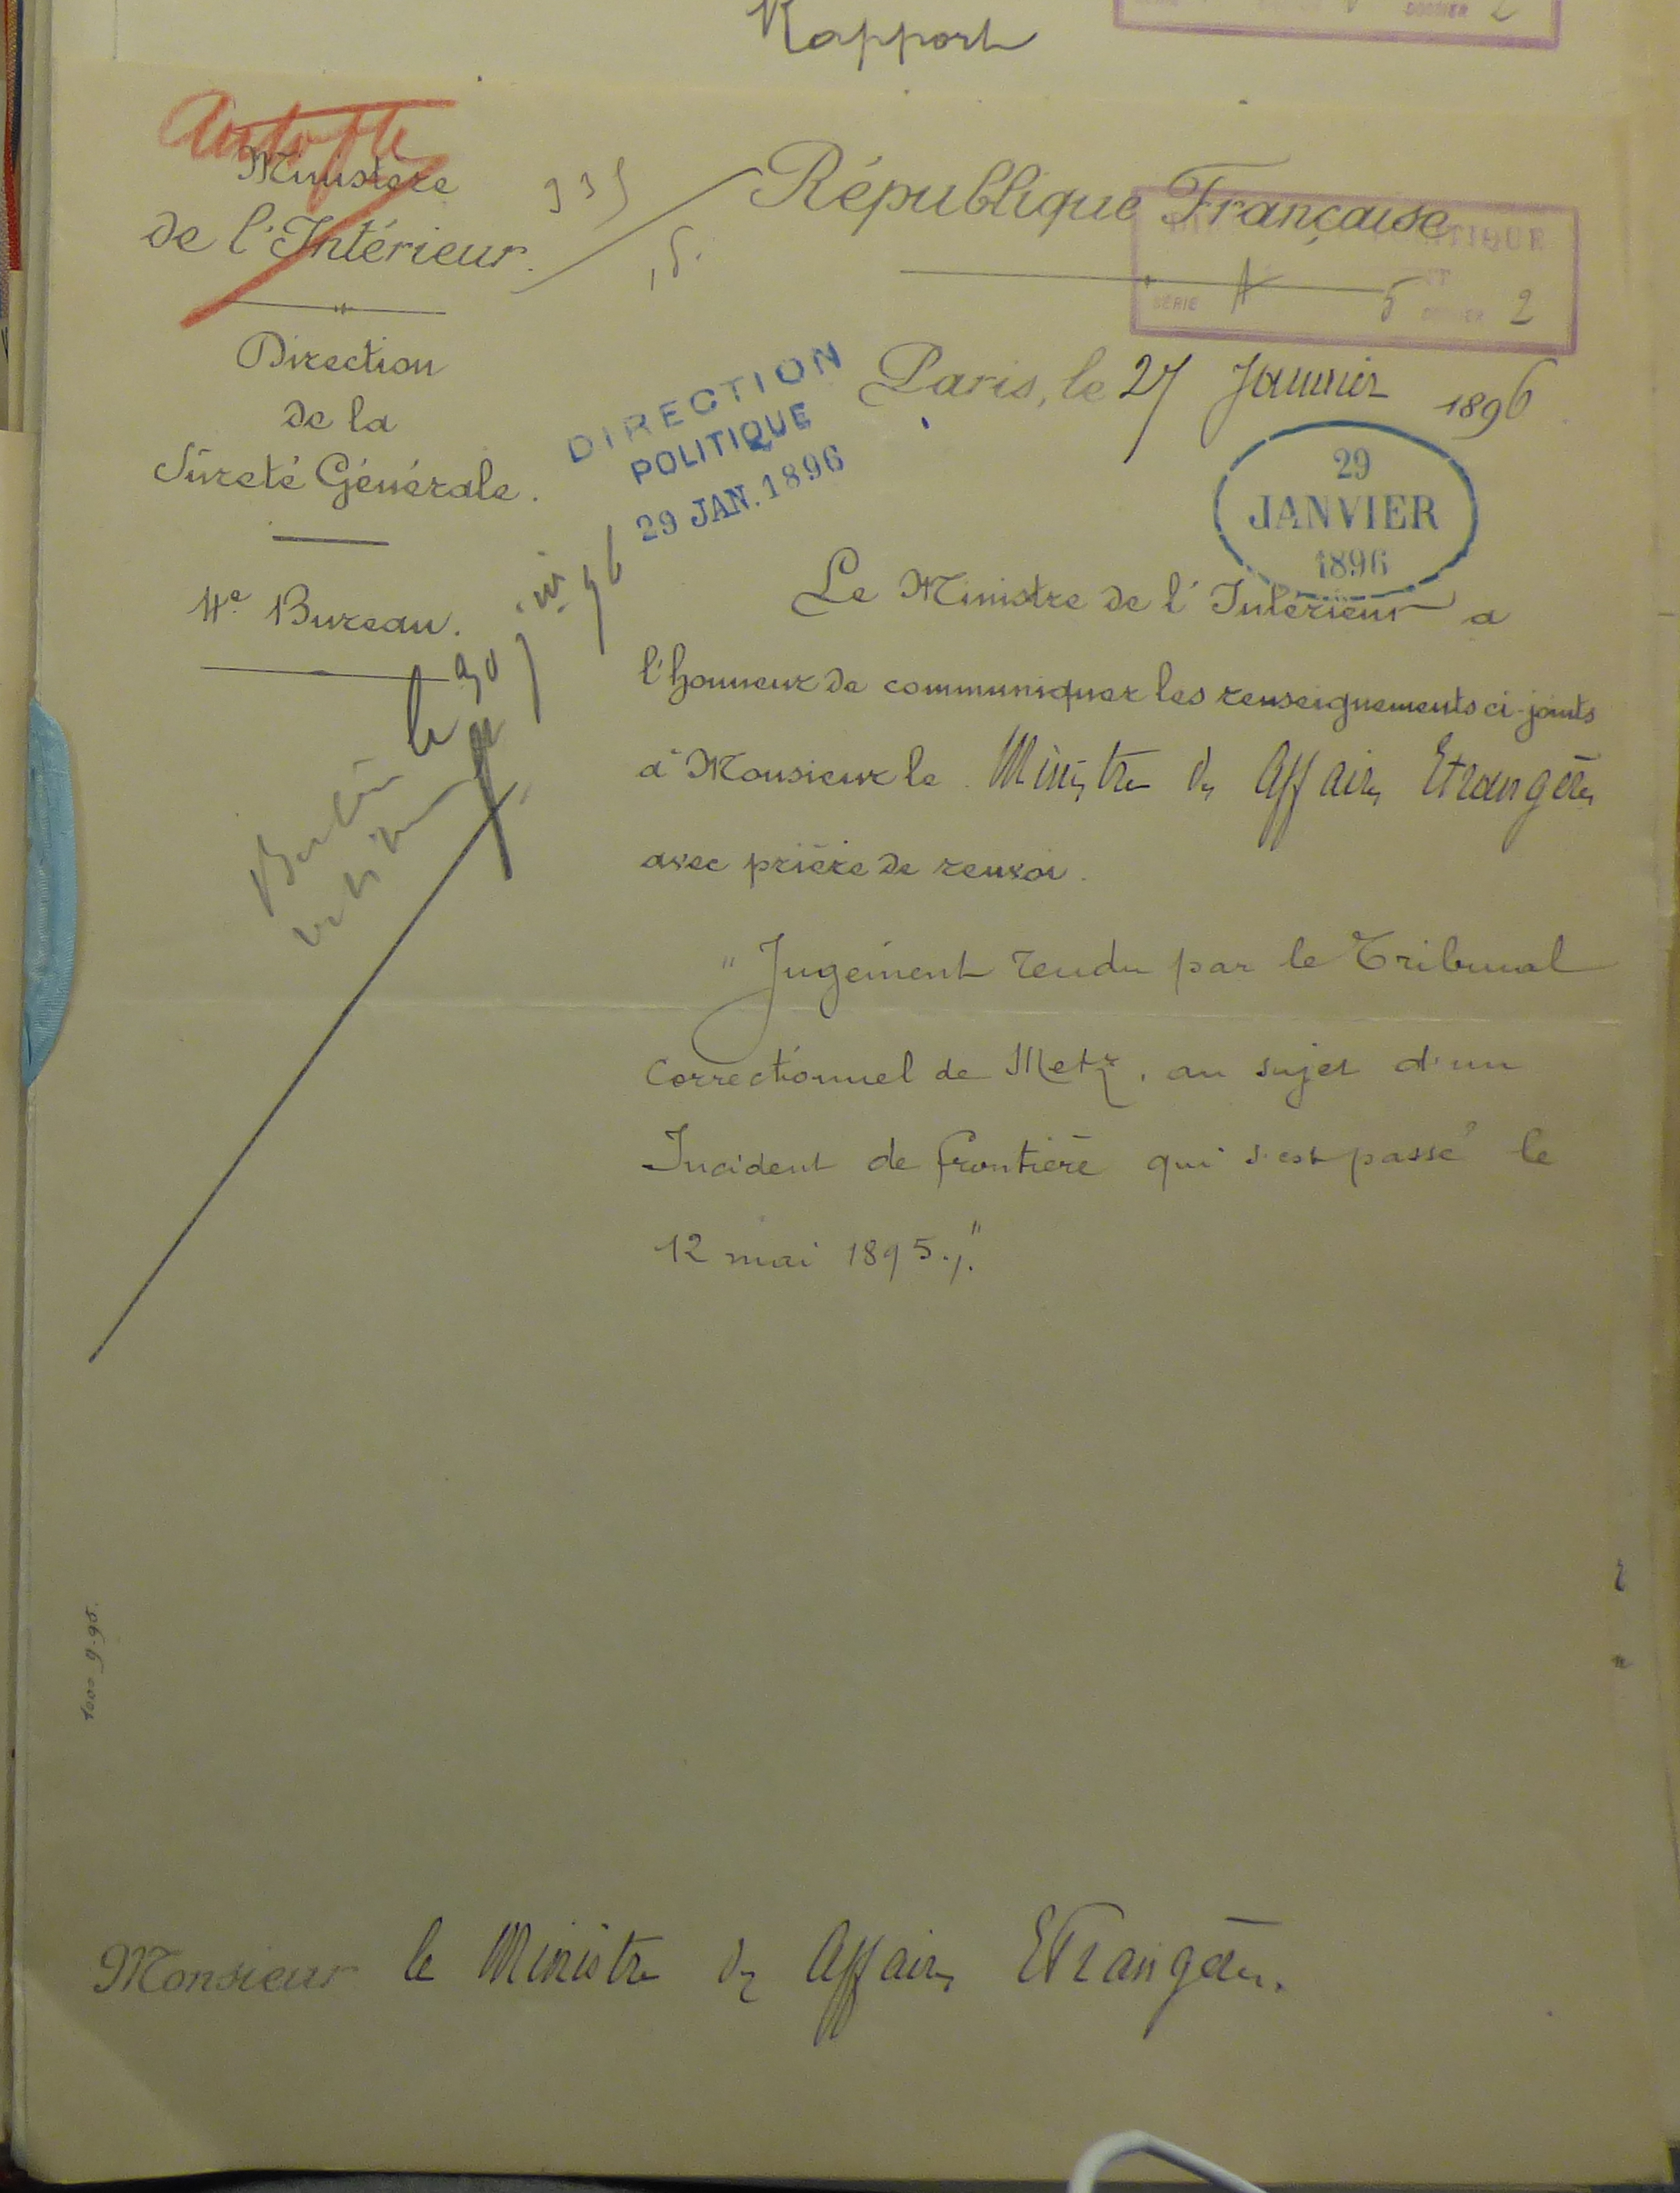 Rapport
DOSSIER 2
Ministère
de l'Intérieur.
Direction
de la
Sûreté Générale.
4e Bureau.
République Française
SÉRIE A 5 DOSSIER 2
Paris, le 27 Janvier 1896
DIRECTION
POLITIQUE
29 JAN. 1896
29
JANVIER
1896
le 30 jer 96
Le Ministre de l'Intérieur a
l'honneur de communiquer les renseignements ci-joints
à Monsieur le Ministre des Affaires Etrangères
avec prière de renvoi.
"Jugement rendu par le Tribunal
Correctionnel de Metz, au sujet d'un
Incident de frontière qui s'est passé le
12 mai 1895."
1000_9-95.
Monsieur le Ministre des Affaires Etrangères.